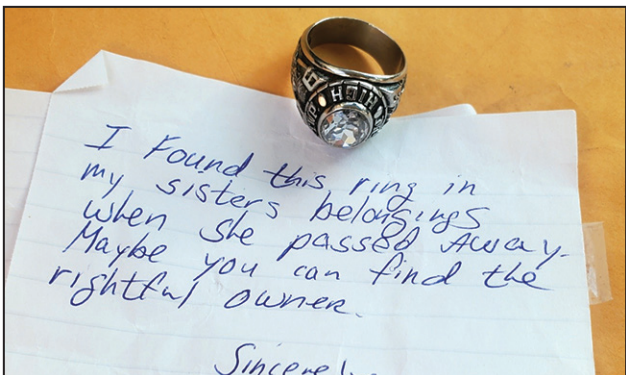 HIGH
I Found this ring in
my sisters belongings
when she passed away.
Maybe you can find the
rightful owner.